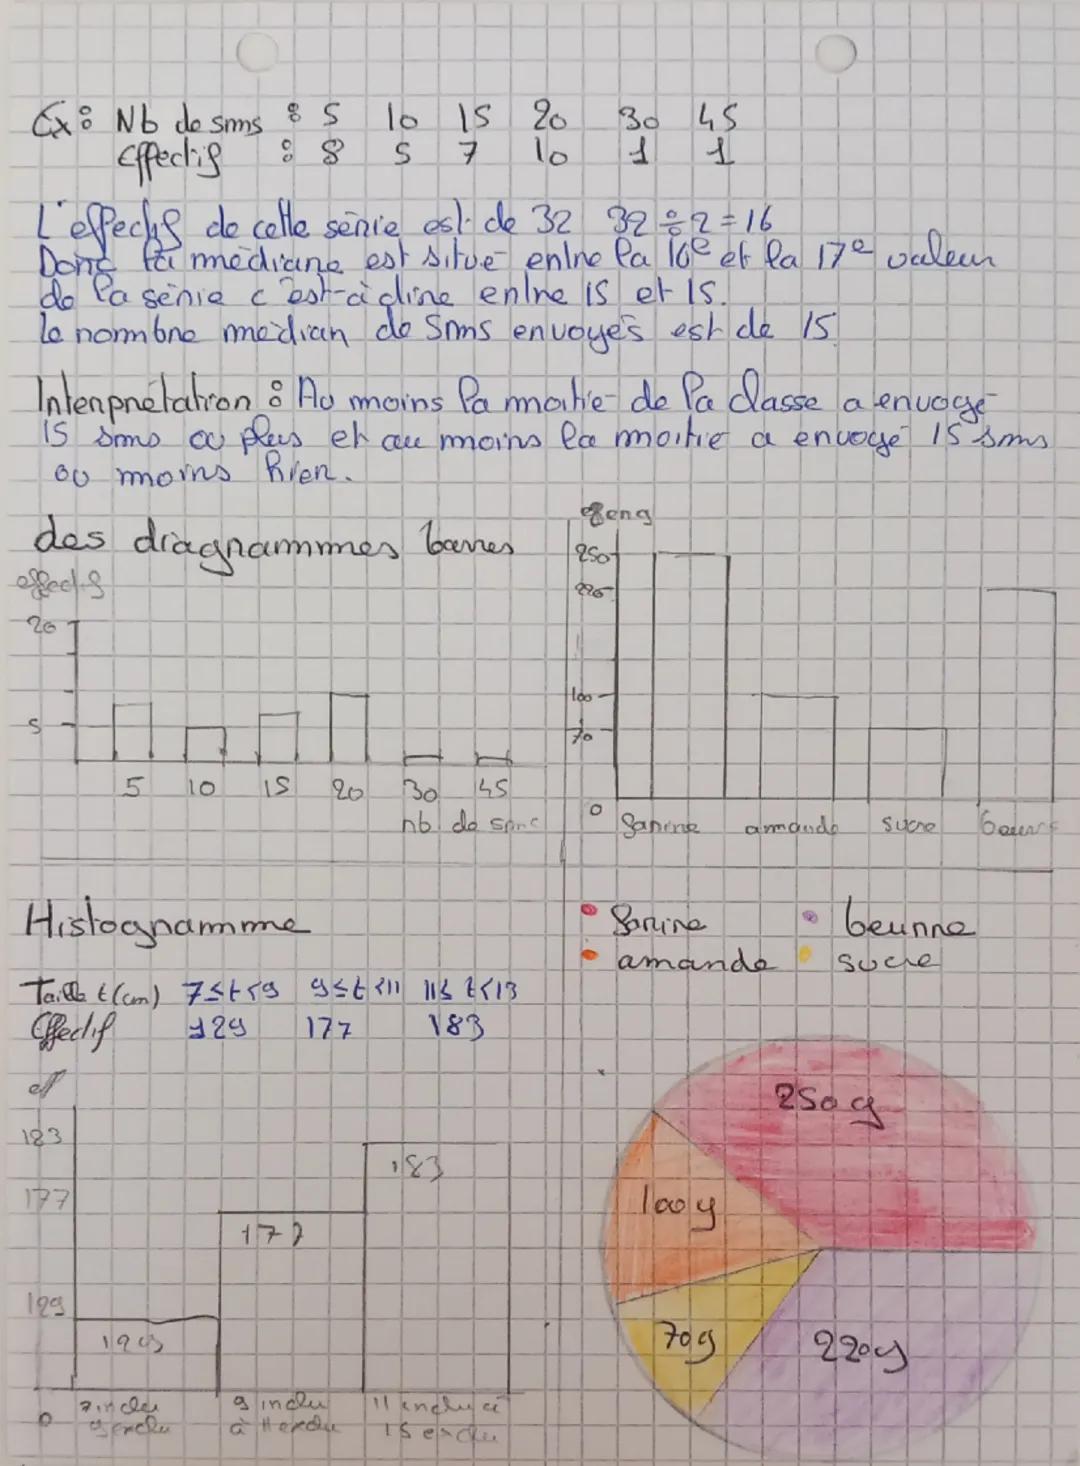 Ex : Nb de sms : 5 10 15 20 30 45
Effectif : 8 5 7 10 1 1
L'effectif de cette série est de 32 32 ÷ 2 = 16
Donc la médiane est situé entre la 16e et la 17e valeur
de la série c'est-à dire entre 15 et 15.
le nombre médian de Sms envoyés est de 15
Interprétation : Au moins la moitié de la classe a envoyé
15 sms ou plus et au moins la moitié a envoyé 15 sms
ou moins
des diagrammes barres
effectif
20
5
5 10 15 20 30 45
nb de sms
en g
250
220
100
70
0
farine amande sucre beurre
Histogramme
Taille t(cm) 7≤t<9 9≤t<11 11≤t<13
Effectif 129 177 183
eff
183
177
129
0
129
177
183
7 inclu
9 exclu
9 inclu
à 11 exclu
11 inclu à
15 exclu
farine
beurre
amande
sucre
250 g
100 g
70 g
220 g